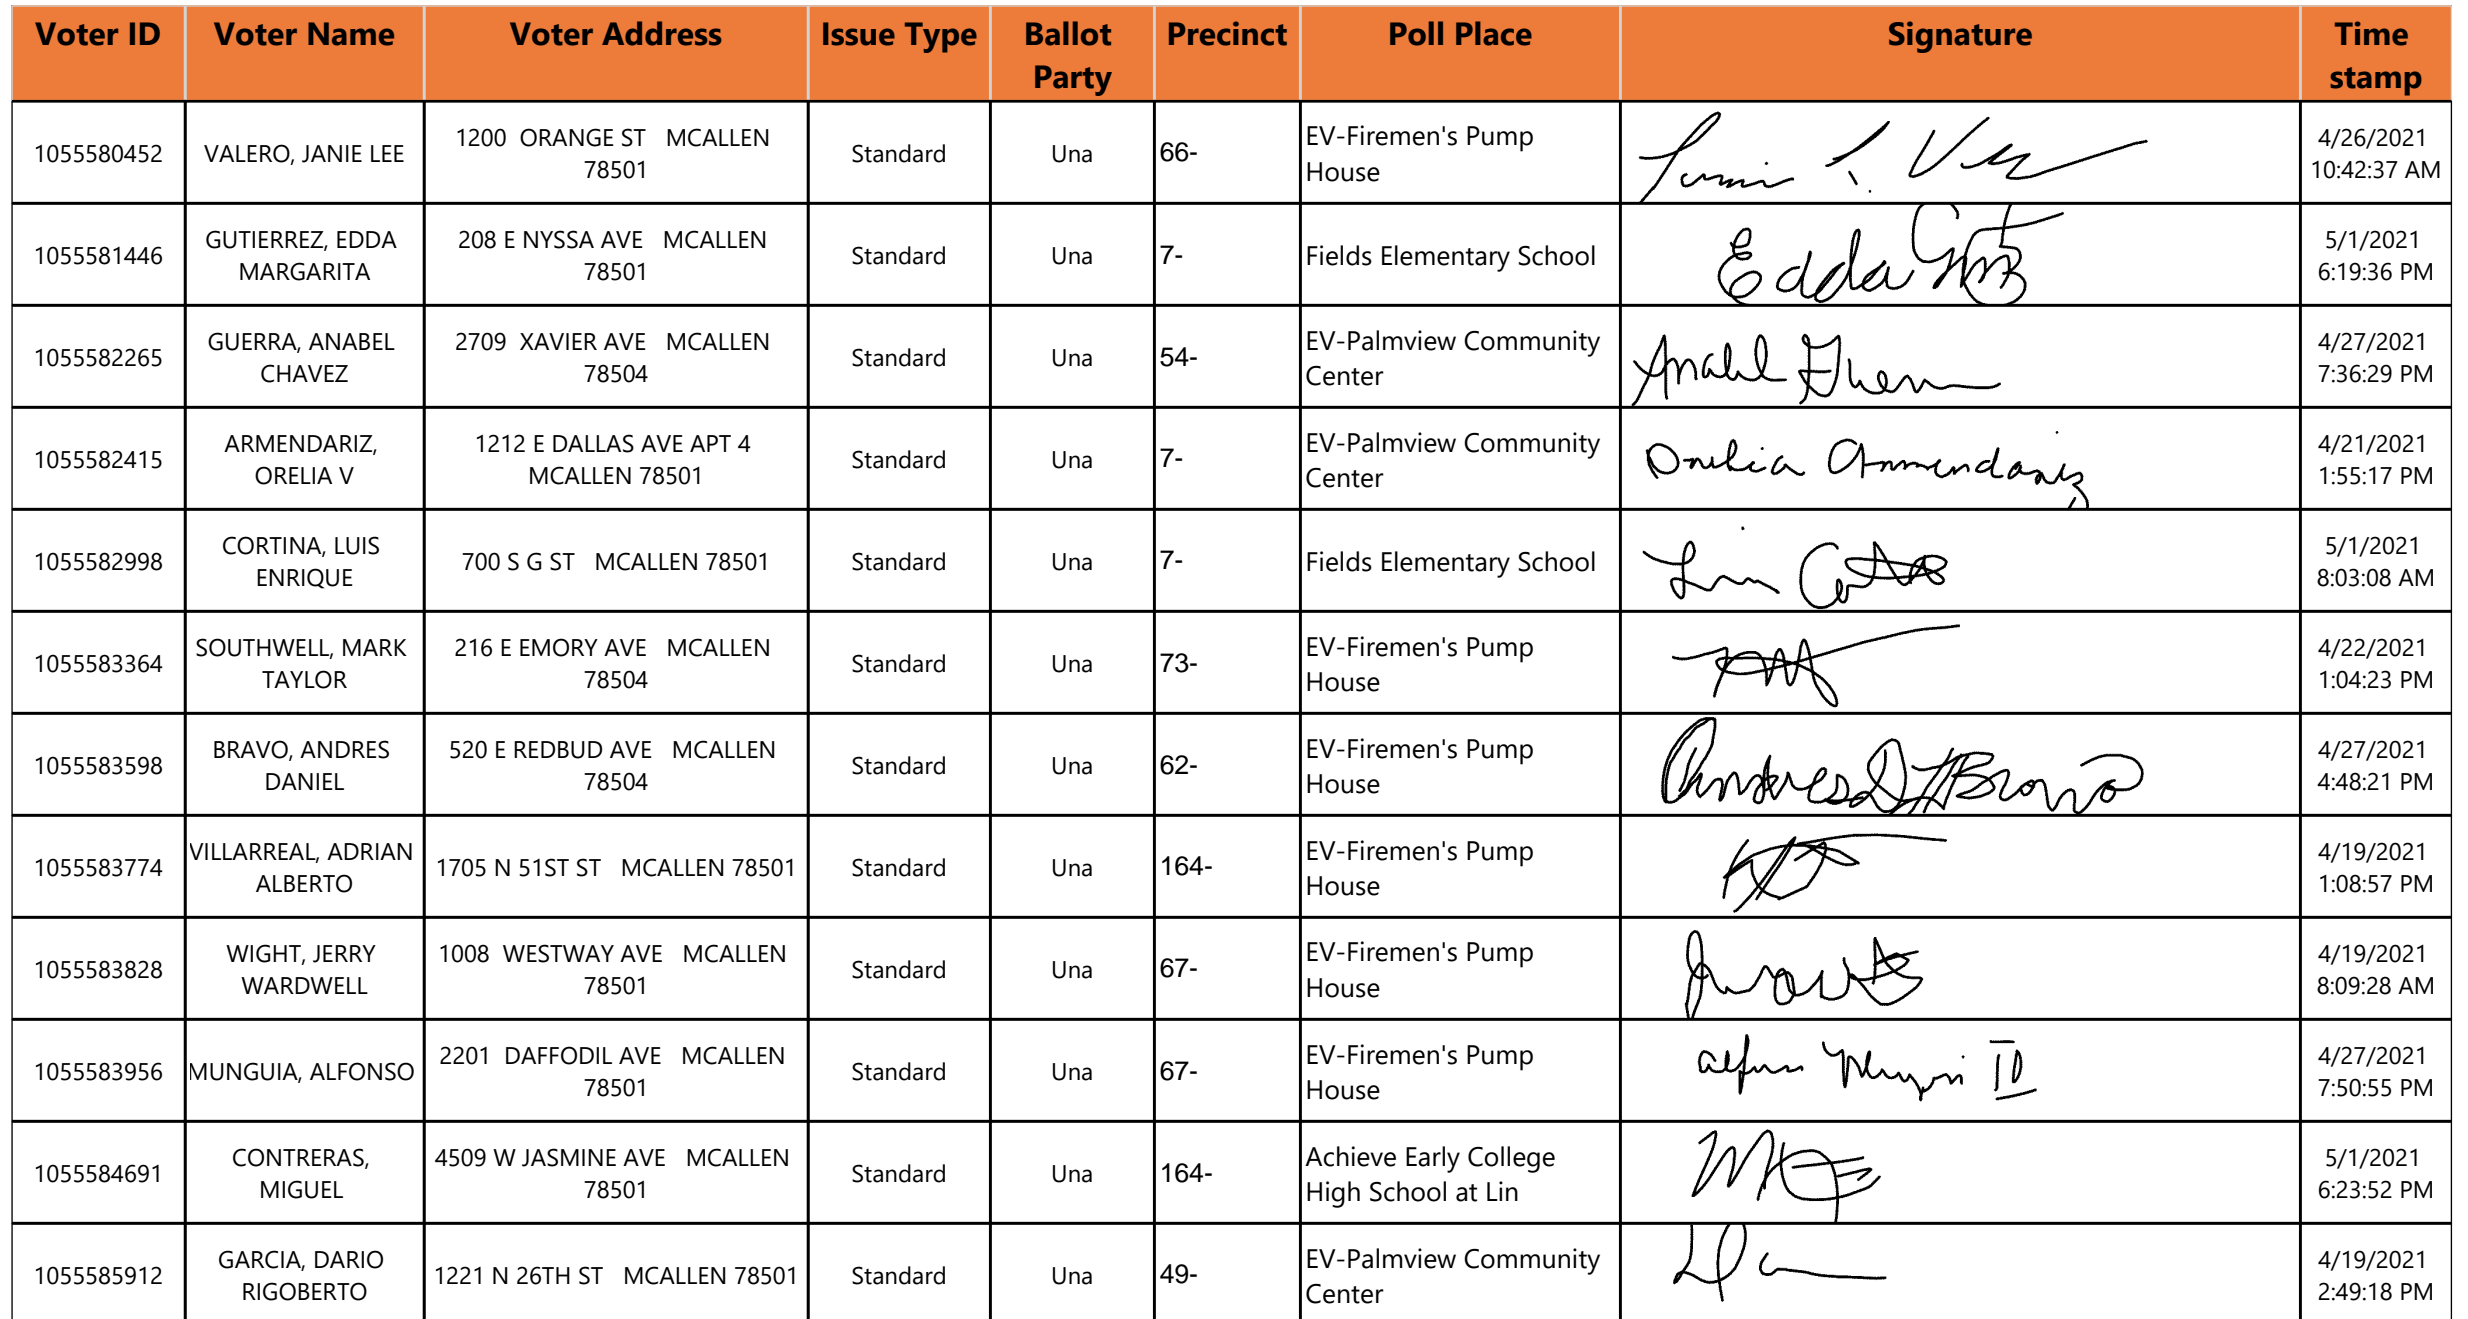 Voter ID Voter Name Voter Address Issue Type Ballot Party Precinct Poll Place Signature Time stamp
1055580452 VALERO, JANIE LEE 1200 ORANGE ST MCALLEN 78501 Standard Una 66- EV-Firemen's Pump House 4/26/2021 10:42:37 AM
1055581446 GUTIERREZ, EDDA MARGARITA 208 E NYSSA AVE MCALLEN 78501 Standard Una 7- Fields Elementary School Edda 5/1/2021 6:19:36 PM
1055582265 GUERRA, ANABEL CHAVEZ 2709 XAVIER AVE MCALLEN 78504 Standard Una 54- EV-Palmview Community Center Anabel Guerra 4/27/2021 7:36:29 PM
1055582415 ARMENDARIZ, ORELIA V 1212 E DALLAS AVE APT 4 MCALLEN 78501 Standard Una 7- EV-Palmview Community Center Orelia Armendariz 4/21/2021 1:55:17 PM
1055582998 CORTINA, LUIS ENRIQUE 700 S G ST MCALLEN 78501 Standard Una 7- Fields Elementary School 5/1/2021 8:03:08 AM
1055583364 SOUTHWELL, MARK TAYLOR 216 E EMORY AVE MCALLEN 78504 Standard Una 73- EV-Firemen's Pump House 4/22/2021 1:04:23 PM
1055583598 BRAVO, ANDRES DANIEL 520 E REDBUD AVE MCALLEN 78504 Standard Una 62- EV-Firemen's Pump House Andres D Bravo 4/27/2021 4:48:21 PM
1055583774 VILLARREAL, ADRIAN ALBERTO 1705 N 51ST ST MCALLEN 78501 Standard Una 164- EV-Firemen's Pump House 4/19/2021 1:08:57 PM
1055583828 WIGHT, JERRY WARDWELL 1008 WESTWAY AVE MCALLEN 78501 Standard Una 67- EV-Firemen's Pump House 4/19/2021 8:09:28 AM
1055583956 MUNGUIA, ALFONSO 2201 DAFFODIL AVE MCALLEN 78501 Standard Una 67- EV-Firemen's Pump House 4/27/2021 7:50:55 PM
1055584691 CONTRERAS, MIGUEL 4509 W JASMINE AVE MCALLEN 78501 Standard Una 164- Achieve Early College High School at Lin 5/1/2021 6:23:52 PM
1055585912 GARCIA, DARIO RIGOBERTO 1221 N 26TH ST MCALLEN 78501 Standard Una 49- EV-Palmview Community Center 4/19/2021 2:49:18 PM